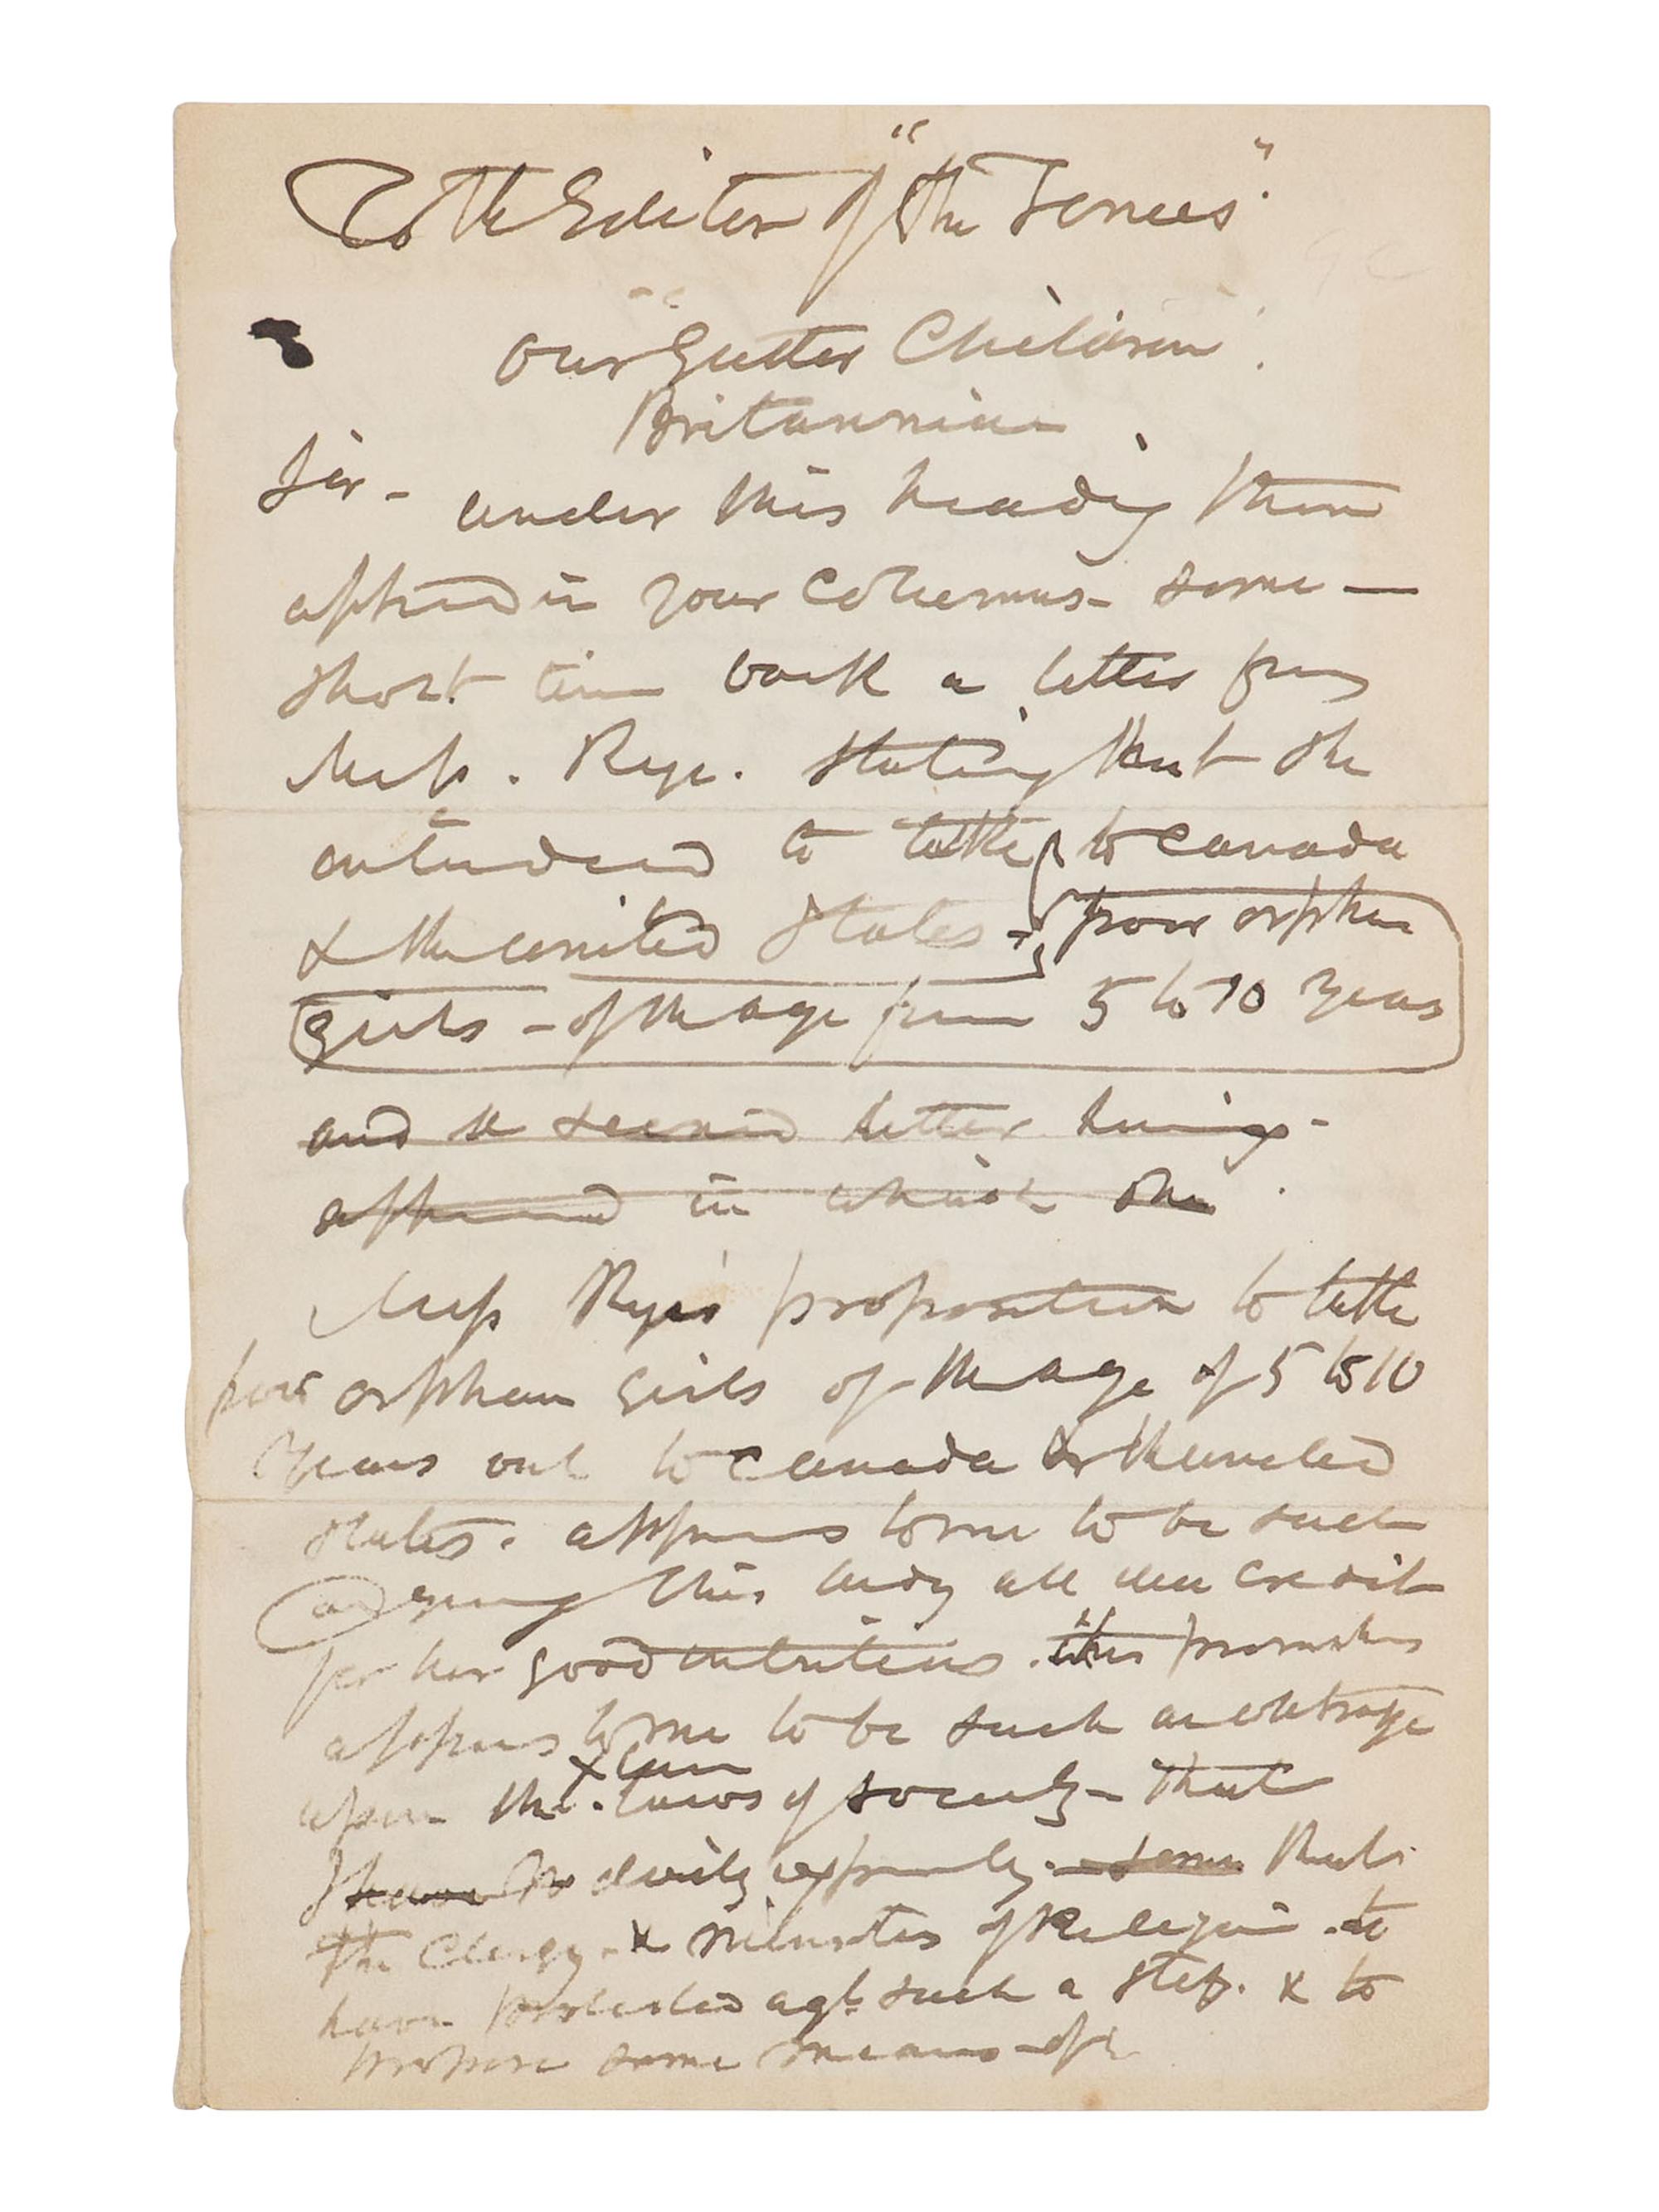 To the Editor of "The Times".
Our "Gutter Children".
Britannia
Sir - under this heading there
appeared in your Columns - some -
short time back a letter from
Miss. Rye. stating that she
intended to take to Canada
& the united States - poor orphan
girls - of the age from 5 to 10 years
and a second letter having -
appeared in which she.
Miss Rye's proposition to take
poor orphan girls of the age of 5 to 10
years out to Canada or the united
States. appears to me to be such
and giving this lady all due credit
for her good intentions. this
appears to me to be such an outrage
upon the. laws of society - that
I have no doubt some that
the Clergy - & ministers of Religion - to
have protested agt such a step. & to
propose some means of